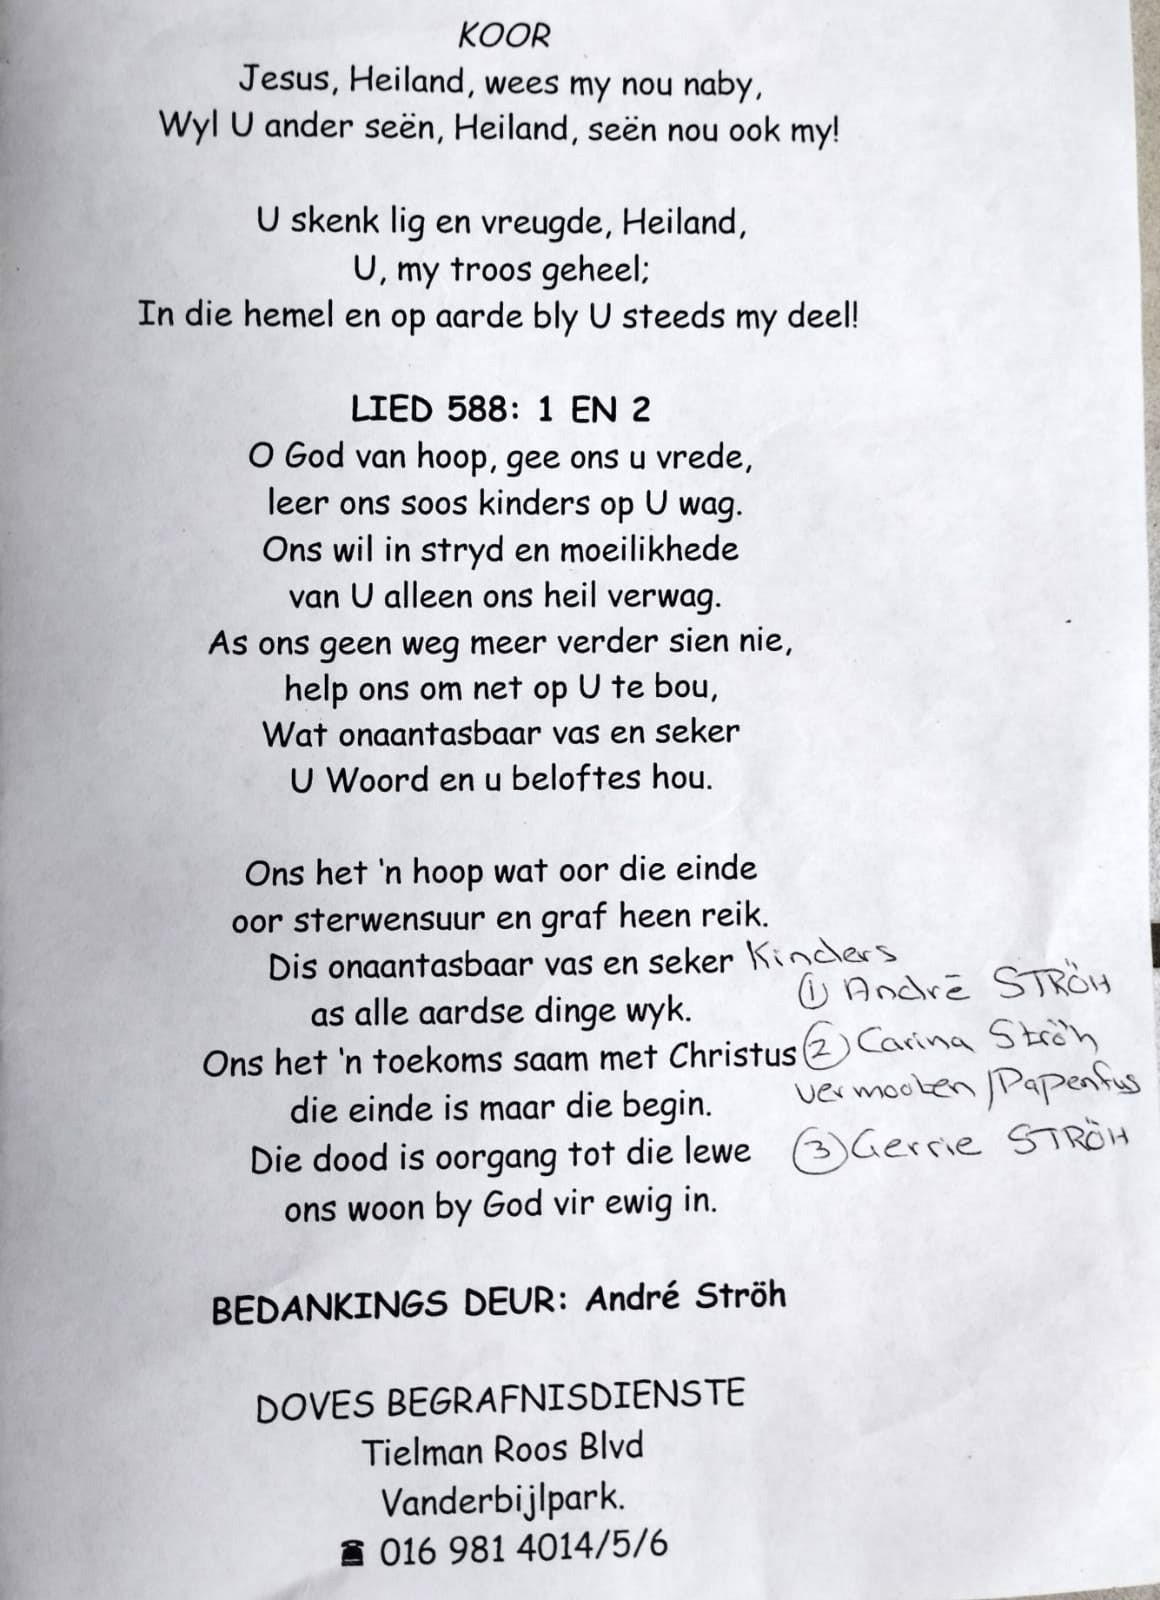 KOOR
Jesus, Heiland, wees my nou naby,
Wyl U ander seën, Heiland, seën nou ook my!
U skenk lig en vreugde, Heiland,
U, my troos geheel;
In die hemel en op aarde bly U steeds my deel!
LIED 588: 1 EN 2
O God van hoop, gee ons u vrede,
leer ons soos kinders op U wag.
Ons wil in stryd en moeilikhede
van U alleen ons heil verwag.
As ons geen weg meer verder sien nie,
help ons om net op U te bou,
Wat onaantasbaar vas en seker
U Woord en u beloftes hou.
Ons het 'n hoop wat oor die einde
oor sterwensuur en graf heen reik.
Dis onaantasbaar vas en seker
as alle aardse dinge wyk.
Ons het 'n toekoms saam met Christus
die einde is maar die begin.
Die dood is oorgang tot die lewe
ons woon by God vir ewig in.
Kinders
① André STRÖH
② Carina Ströh
Vermooten/Papenfus
③ Gerrie STRÖH
BEDANKINGS DEUR: André Ströh
DOVES BEGRAFNISDIENSTE
Tielman Roos Blvd
Vanderbijlpark.
☎ 016 981 4014/5/6